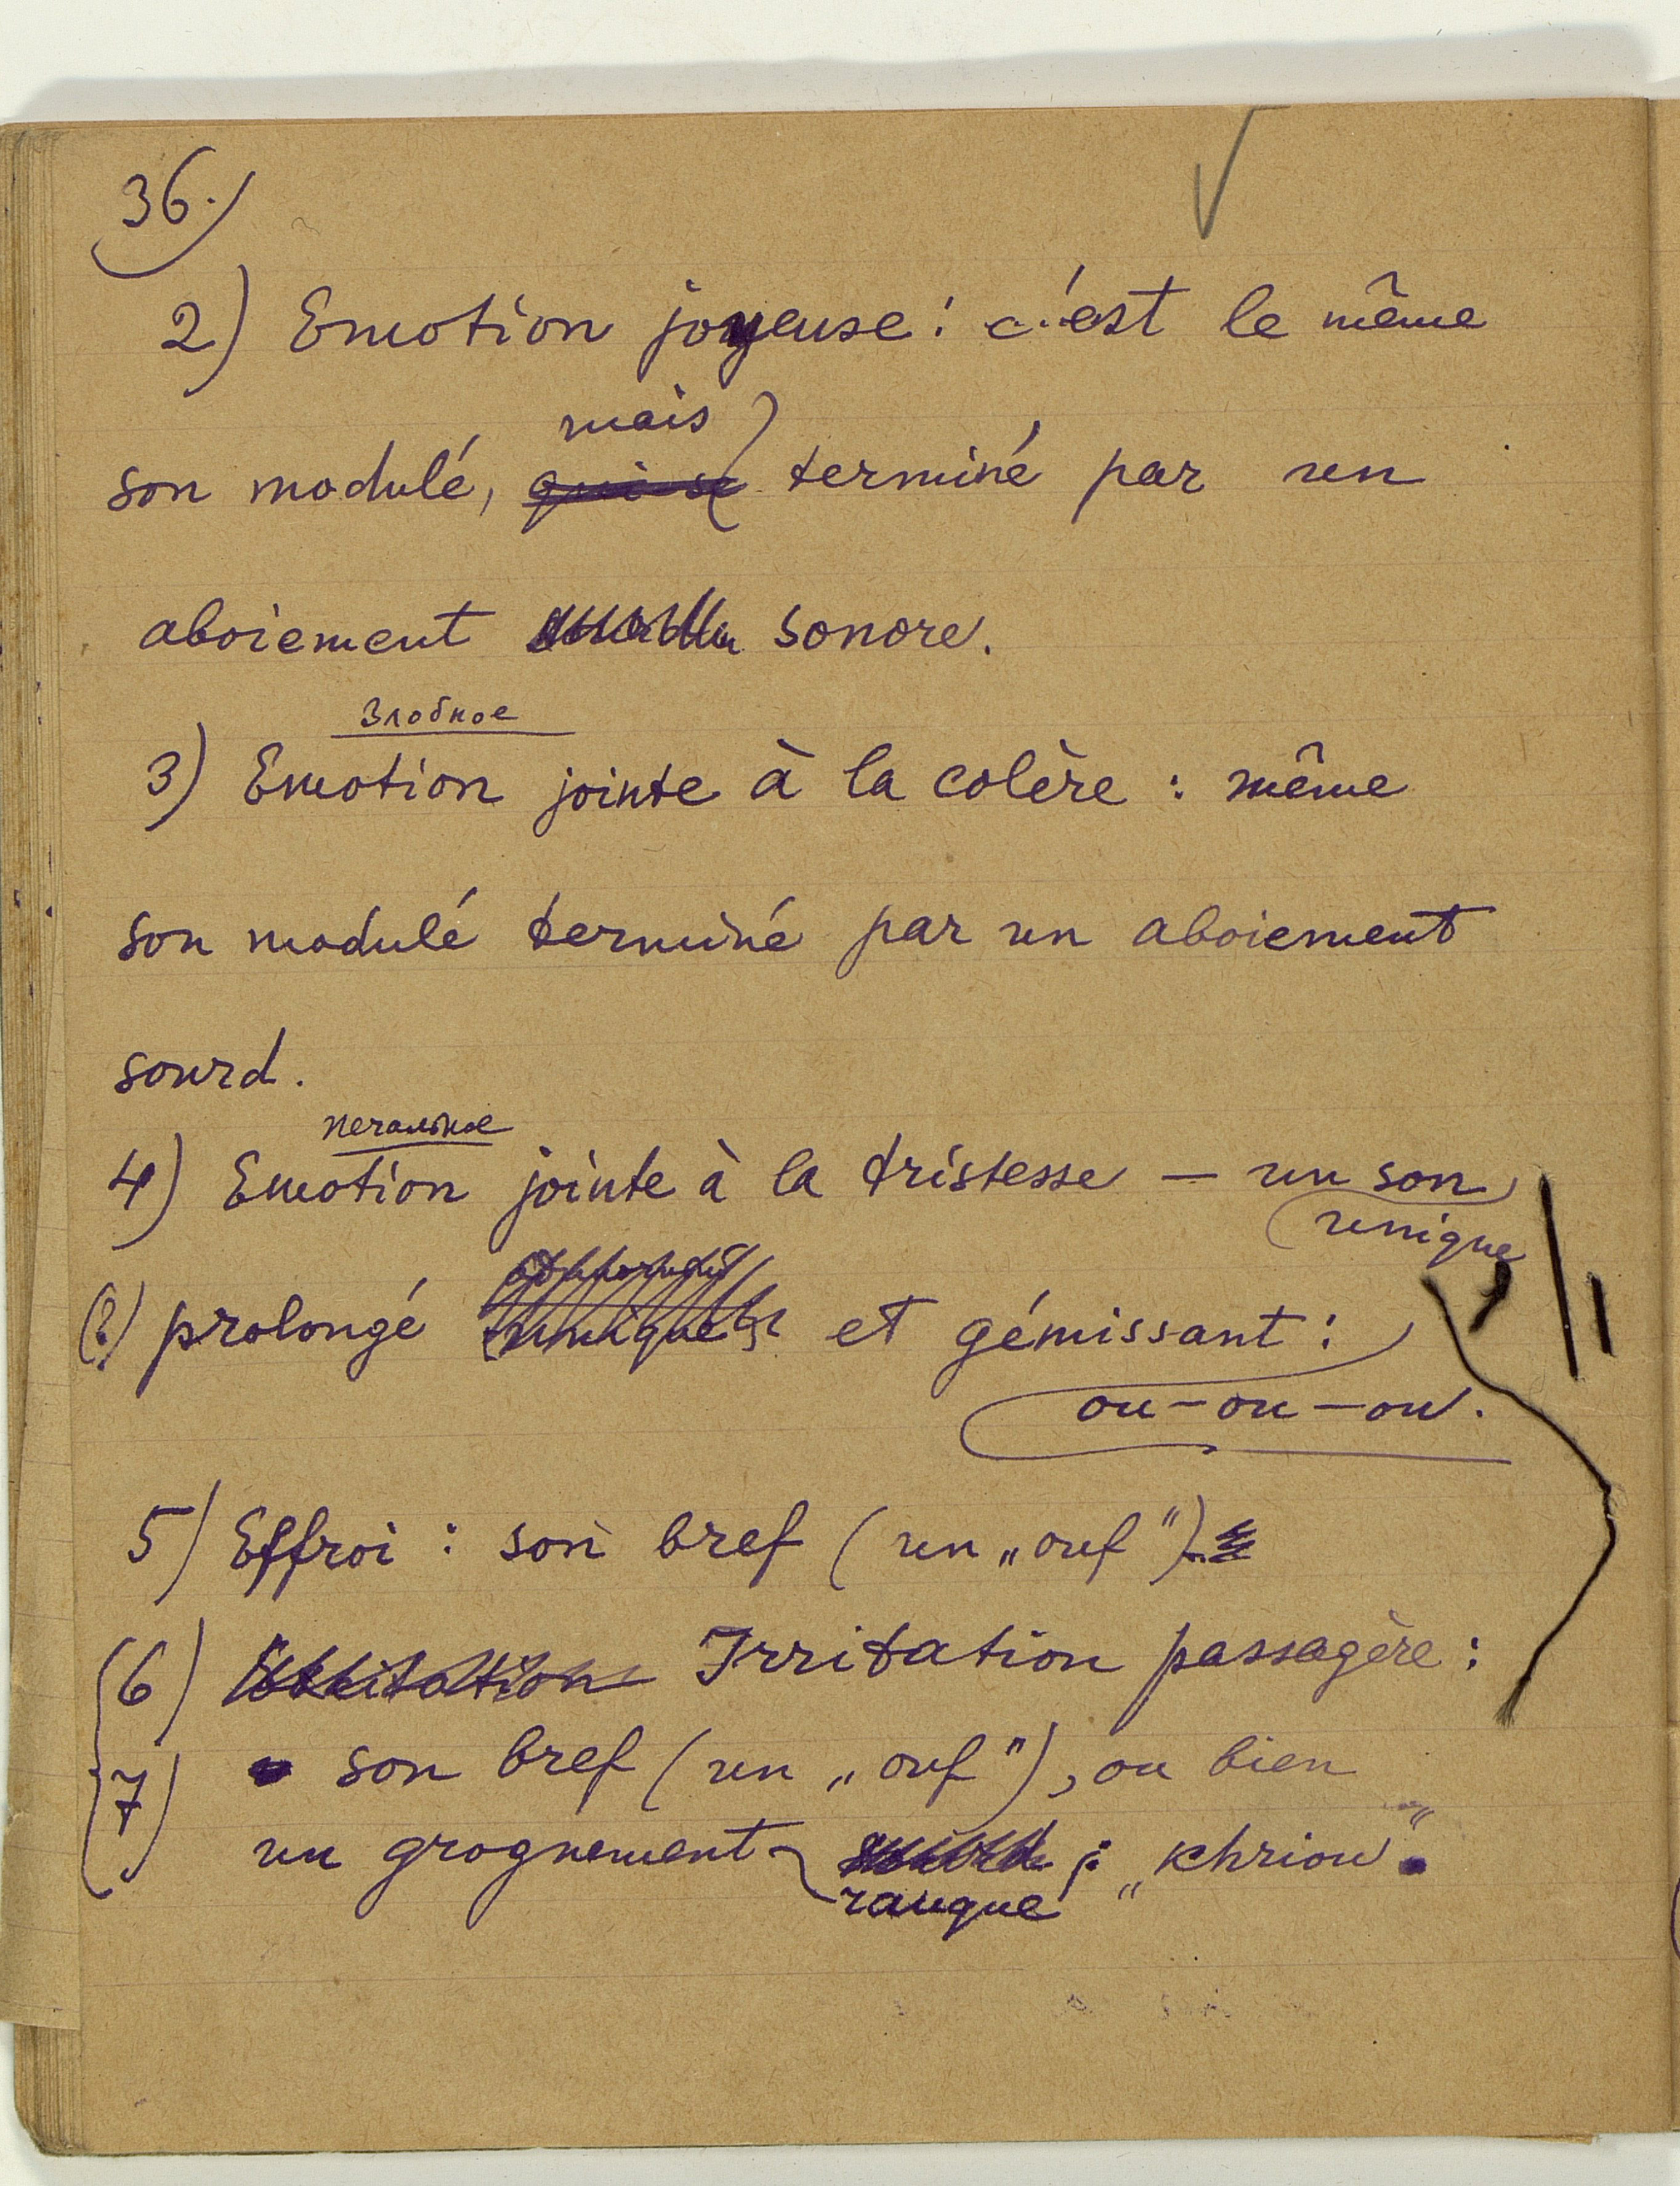 36.)
2) Emotion joyeuse : c'est le même
mais
son modulé, qui se terminé par un
aboiement sonore.
Злобное
3) Emotion jointe à la colère : même
son modulé terminé par un aboiement
sourd.
печальное
4) Emotion jointe à la tristesse — un son
unique
(?) prolongé unique et gémissant :
ou — ou — ou.
5) Effroi : son bref (un „ouf“).
6) Irritation passagère :
7) son bref (un „ouf“), ou bien
un grognement : „khriou“.
rauque